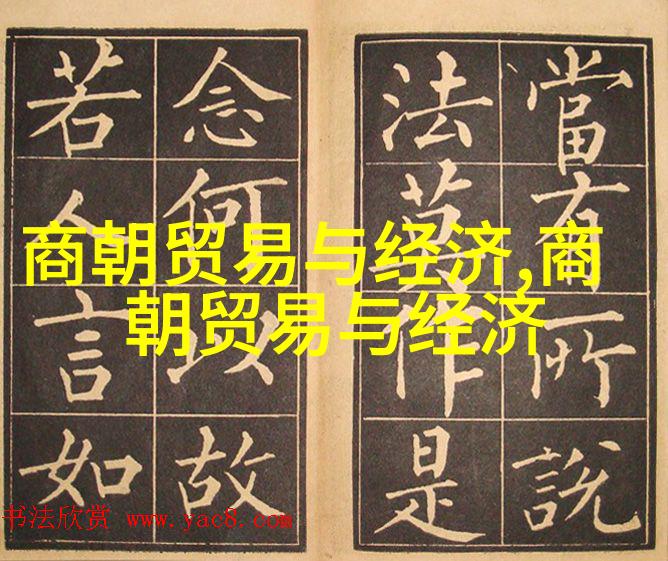 當有所說
法莫作是
念何以故
若人言如
商朝贸易与经济,商
朝贸易与经济
书法欣赏 www.yac8.com